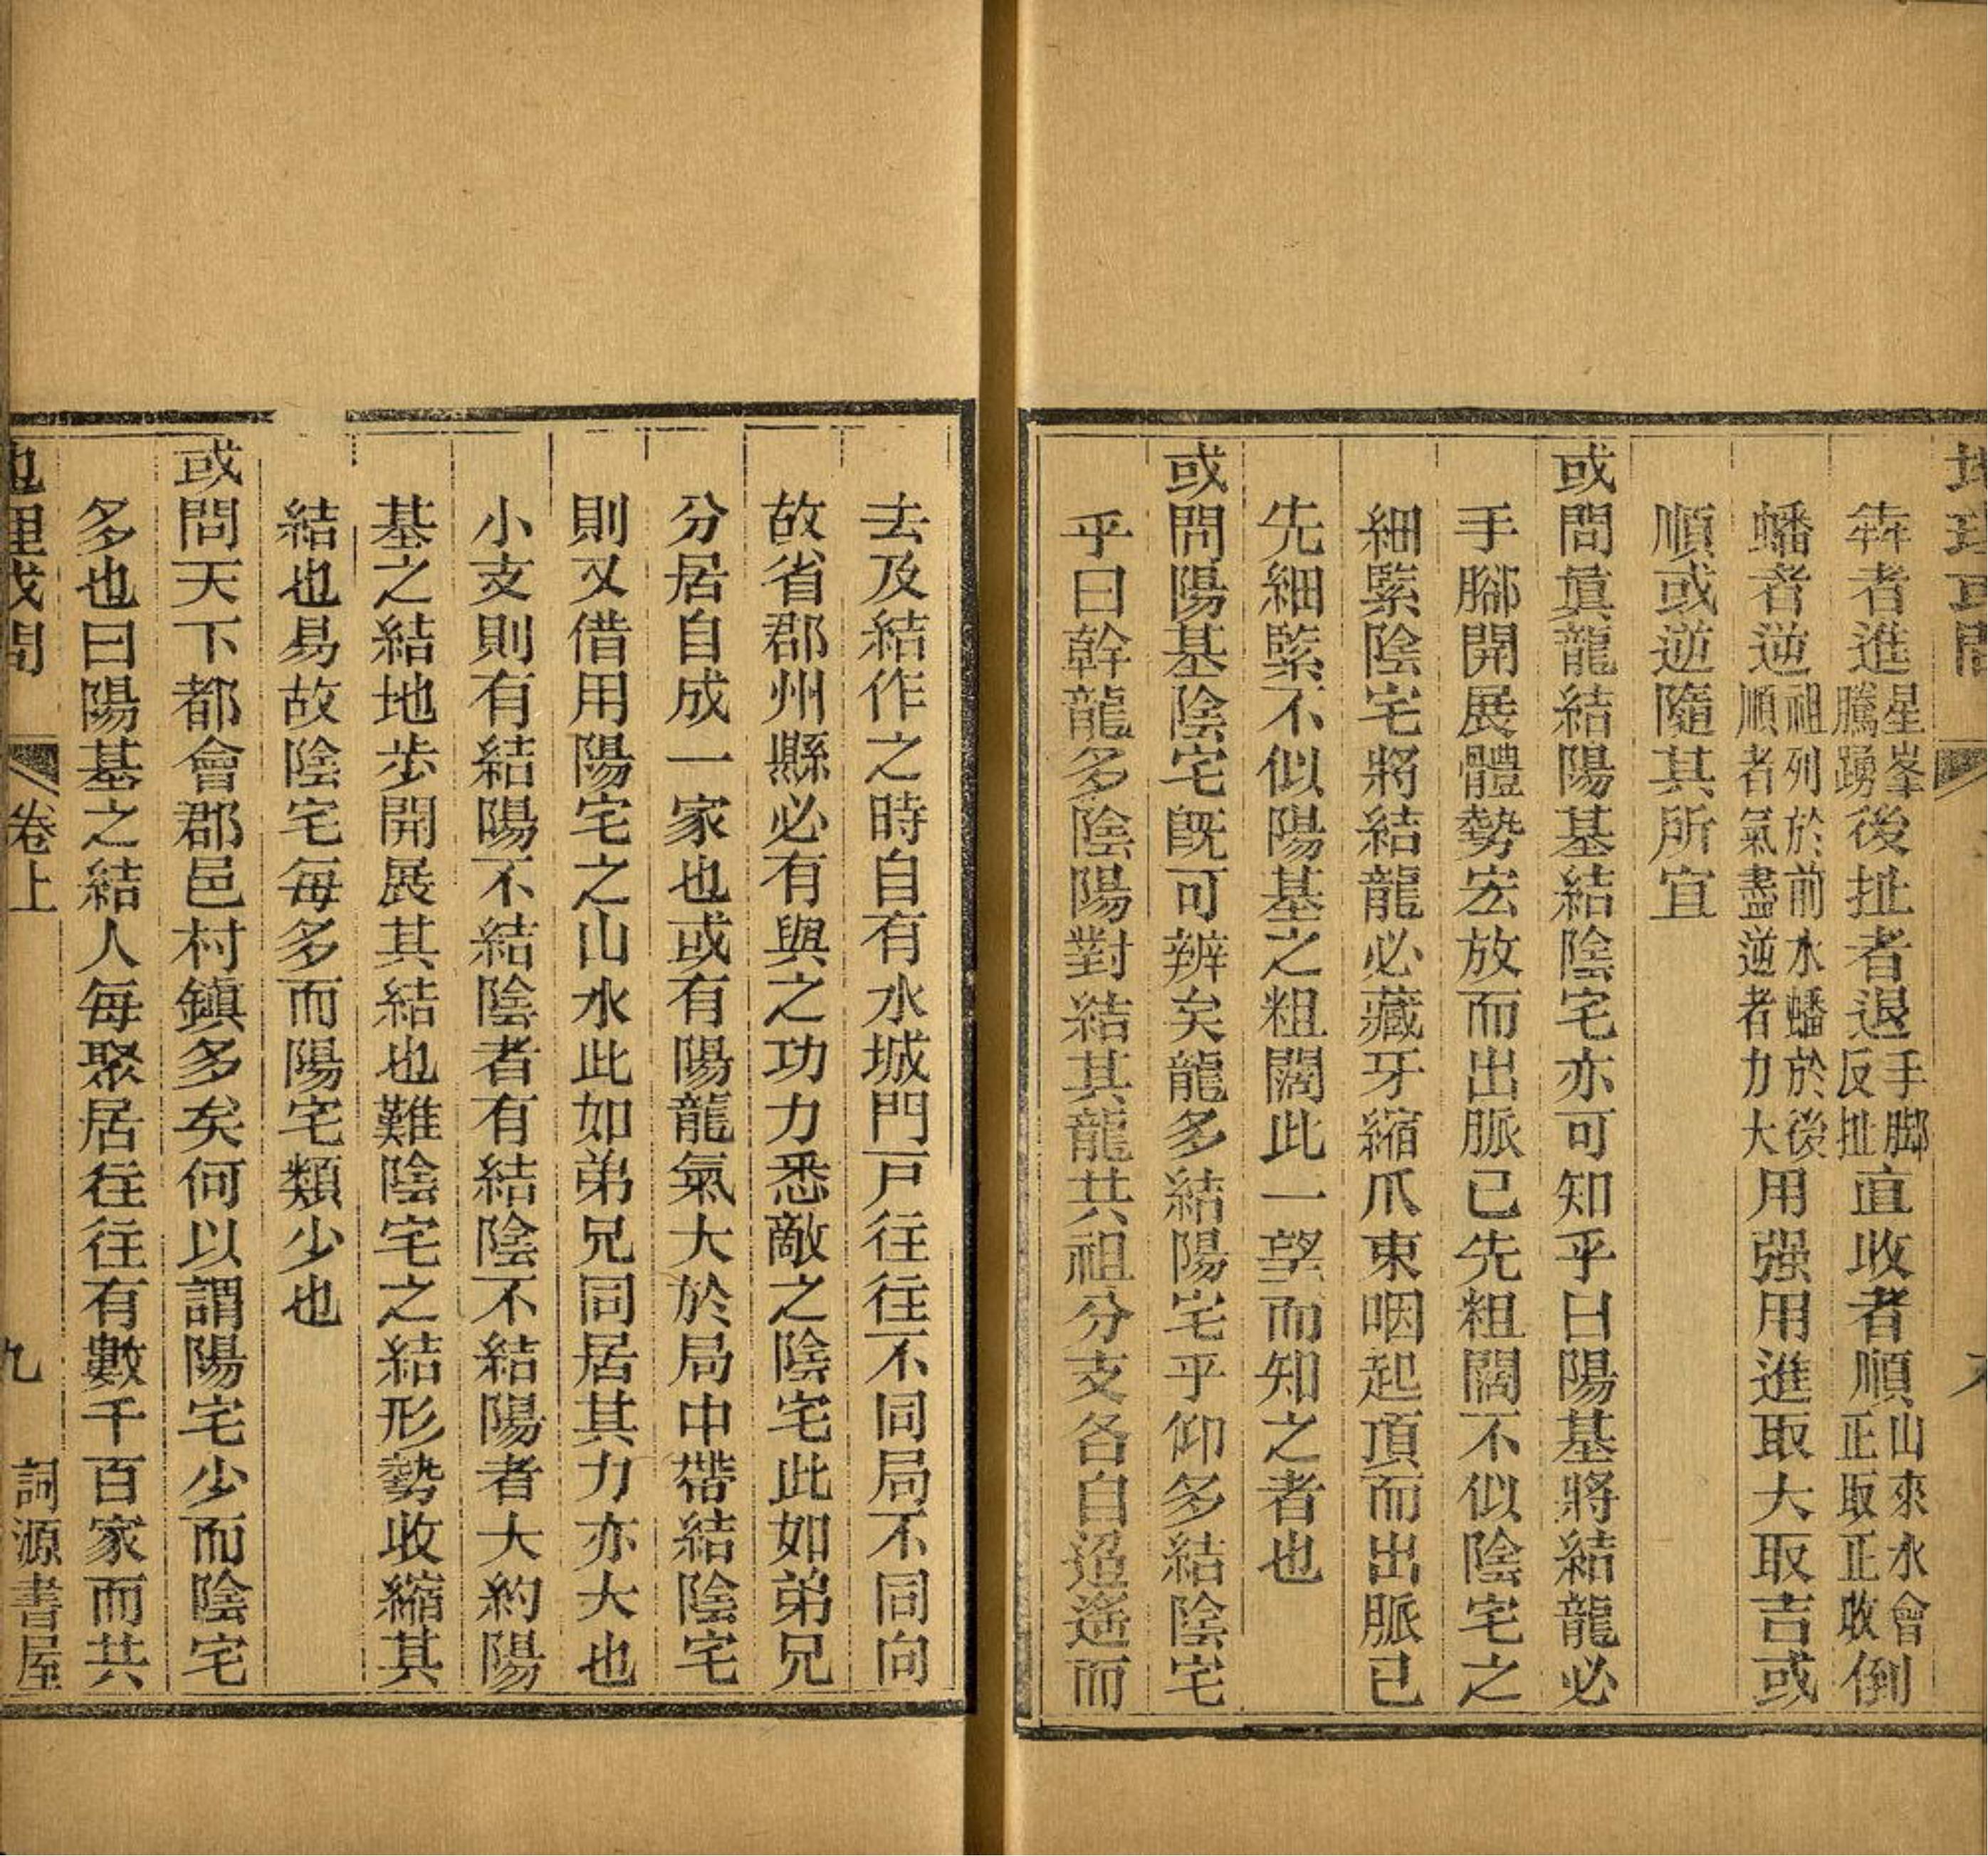 地理或問
犇者進星峯騰踴後扯者退手脚反扯直收者順山來水會正取正收倒
蟠者逆祖列於前水蟠於後順者氣盡逆者力大用强用進取大取吉或
順或逆隨其所宜
或問眞龍結陽基結陰宅亦可知乎曰陽基將結龍必
手腳開展體勢宏放而出脈已先粗闊不似陰宅之
細緊陰宅將結龍必藏牙縮爪束咽起頂而出脈已
先細緊不似陽基之粗闊此一望而知之者也
或問陽基陰宅旣可辨矣龍多結陽宅乎仰多結陰宅
乎曰幹龍多陰陽對結其龍共祖分支各自迢遙而
去及結作之時自有水城門戸往往不同局不同向
故省郡州縣必有與之功力悉敵之陰宅此如弟兄
分居自成一家也或有陽龍氣大於局中帶結陰宅
則又借用陽宅之山水此如弟兄同居其力亦大也
小支則有結陽不結陰者有結陰不結陽者大約陽
基之結地步開展其結也難陰宅之結形勢收縮其
結也易故陰宅每多而陽宅類少也
或問天下都會郡邑村鎭多矣何以謂陽宅少而陰宅
多也曰陽基之結人每聚居往往有數千百家而共
地理或問 卷上 九 詞源書屋